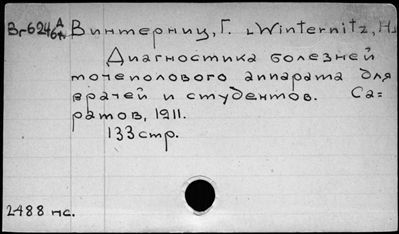 Br624 A/64 Винтерниц, Г. ⌞Winternitz, H⌟
Диагностика болезней
мочеполового аппарата для
врачей и студентов. Са=
ратов, 1911.
133 стр.
2488 пс.